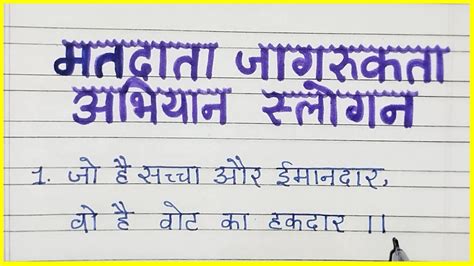 मतदाता जागरुकता
अभियान स्लोगन
1. जो है सच्चा और ईमानदार,
वो है वोट का हकदार ।।